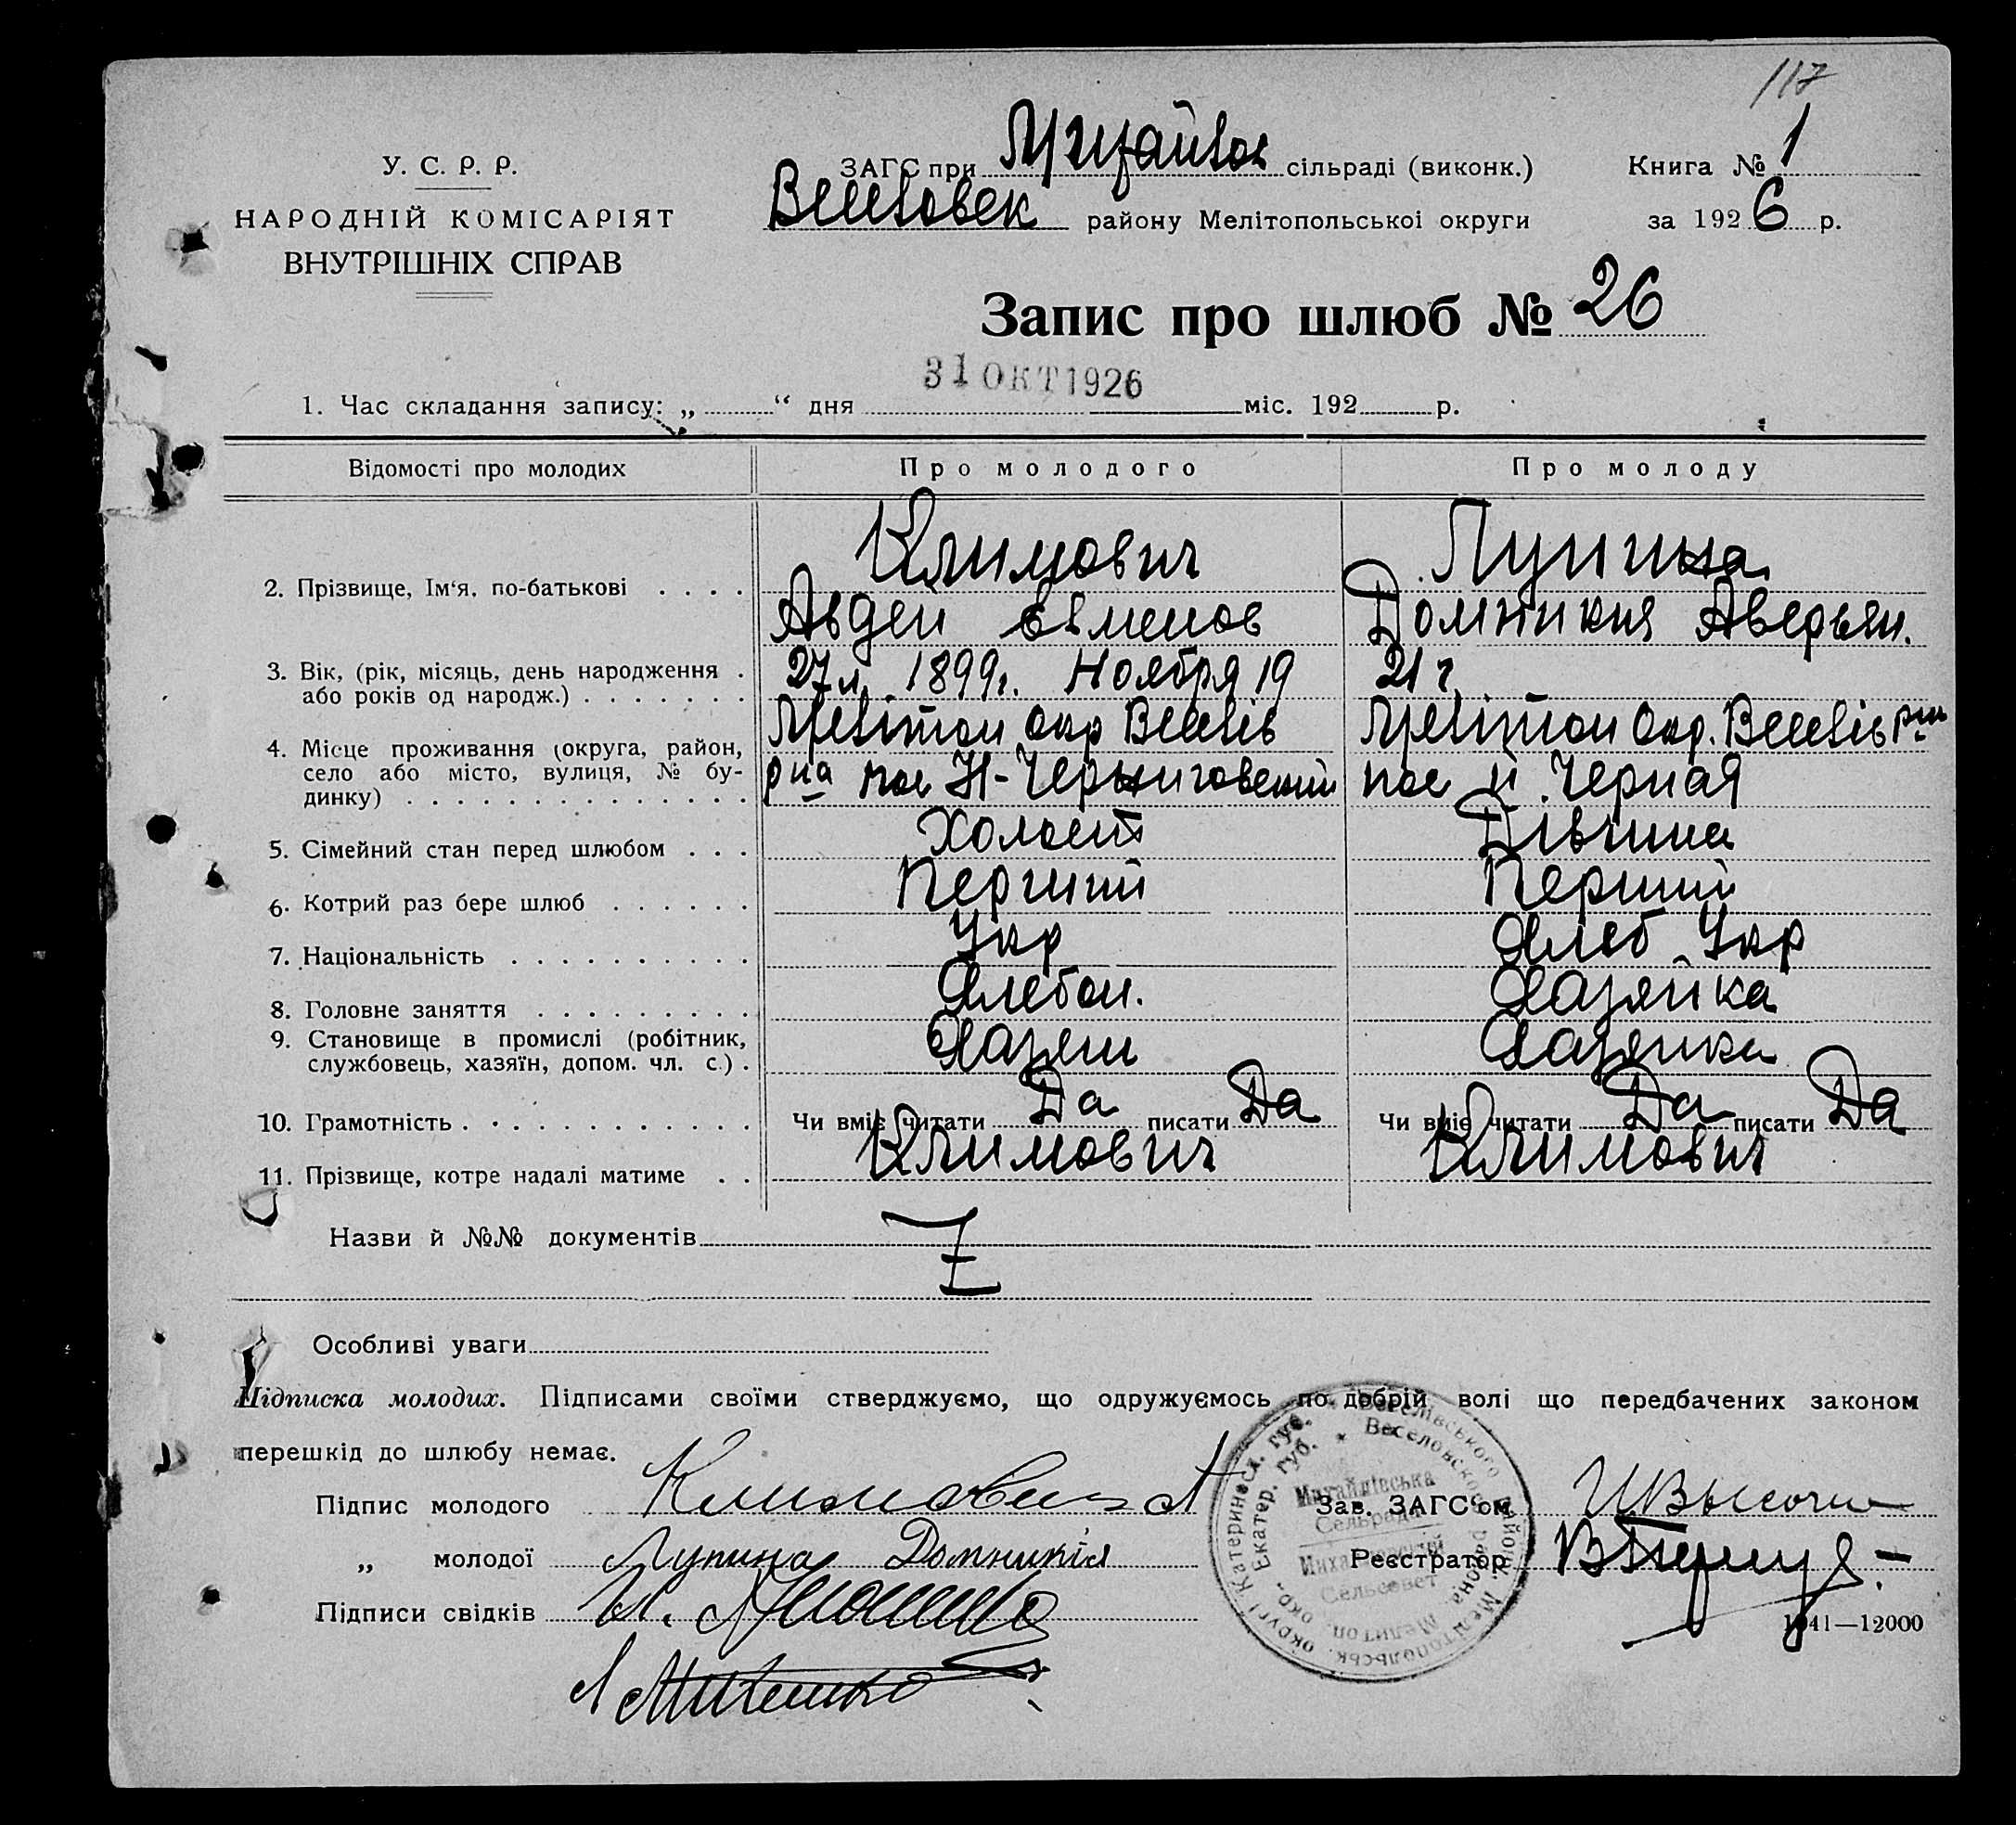 117
У. С. Р. Р.
НАРОДНІЙ КОМІСАРІЯТ
ВНУТРІШНІХ СПРАВ
ЗАГС при Михайлов сільраді (виконк.)
Веселовск району Мелітопольської округи
Книга № 1
за 1926 р.
Запис про шлюб № 26
31 ОКТ 1926
1. Час складання запису: „ “ дня міс. 192 р.
Відомості про молодих Про молодого Про молоду
Климович Лупина
2. Прізвище, Ім‘я, по-батькові Авдей Евменов Домникия Аверьян.
3. Вік, (рік, місяць, день народження або років од народж.) 27 л. 1899 г. Ноября 19 21 г.
4. Місце проживання (округа, район, село або місто, вулиця, № будинку) Мелітоп Окр Веселів р на пос Н-Черниговский Мелітоп Окр. Веселів р на пос
5. Сімейний стан перед шлюбом Холост Дівчина
6. Котрий раз бере шлюб Перший Перший
7. Національність Укр Хлеб Укр
8. Головне заняття Хлебоп. Хазяйка
9. Становище в промислі (робітник, службовець, хазяїн, допом. чл. с.) Хазяин Хазяйка
10. Грамотність Чи вміє читати Да писати Да Чи вміє читати Да писати Да
11. Прізвище, котре надалі матиме Климович Климович
Назви й №№ документів
Особливі уваги
Підписка молодих. Підписами своїми стверджуємо, що одружуємось по добрій волі що передбачених законом
перешкід до шлюбу немає.
Підпис молодого Климович А
„ молодої Лупина Домникія
Підписи свідків
Зав. ЗАГС‘ом
Реєстратор
1941—12000
Михайлівська
Сельрада
Михайловский
Сельсовет